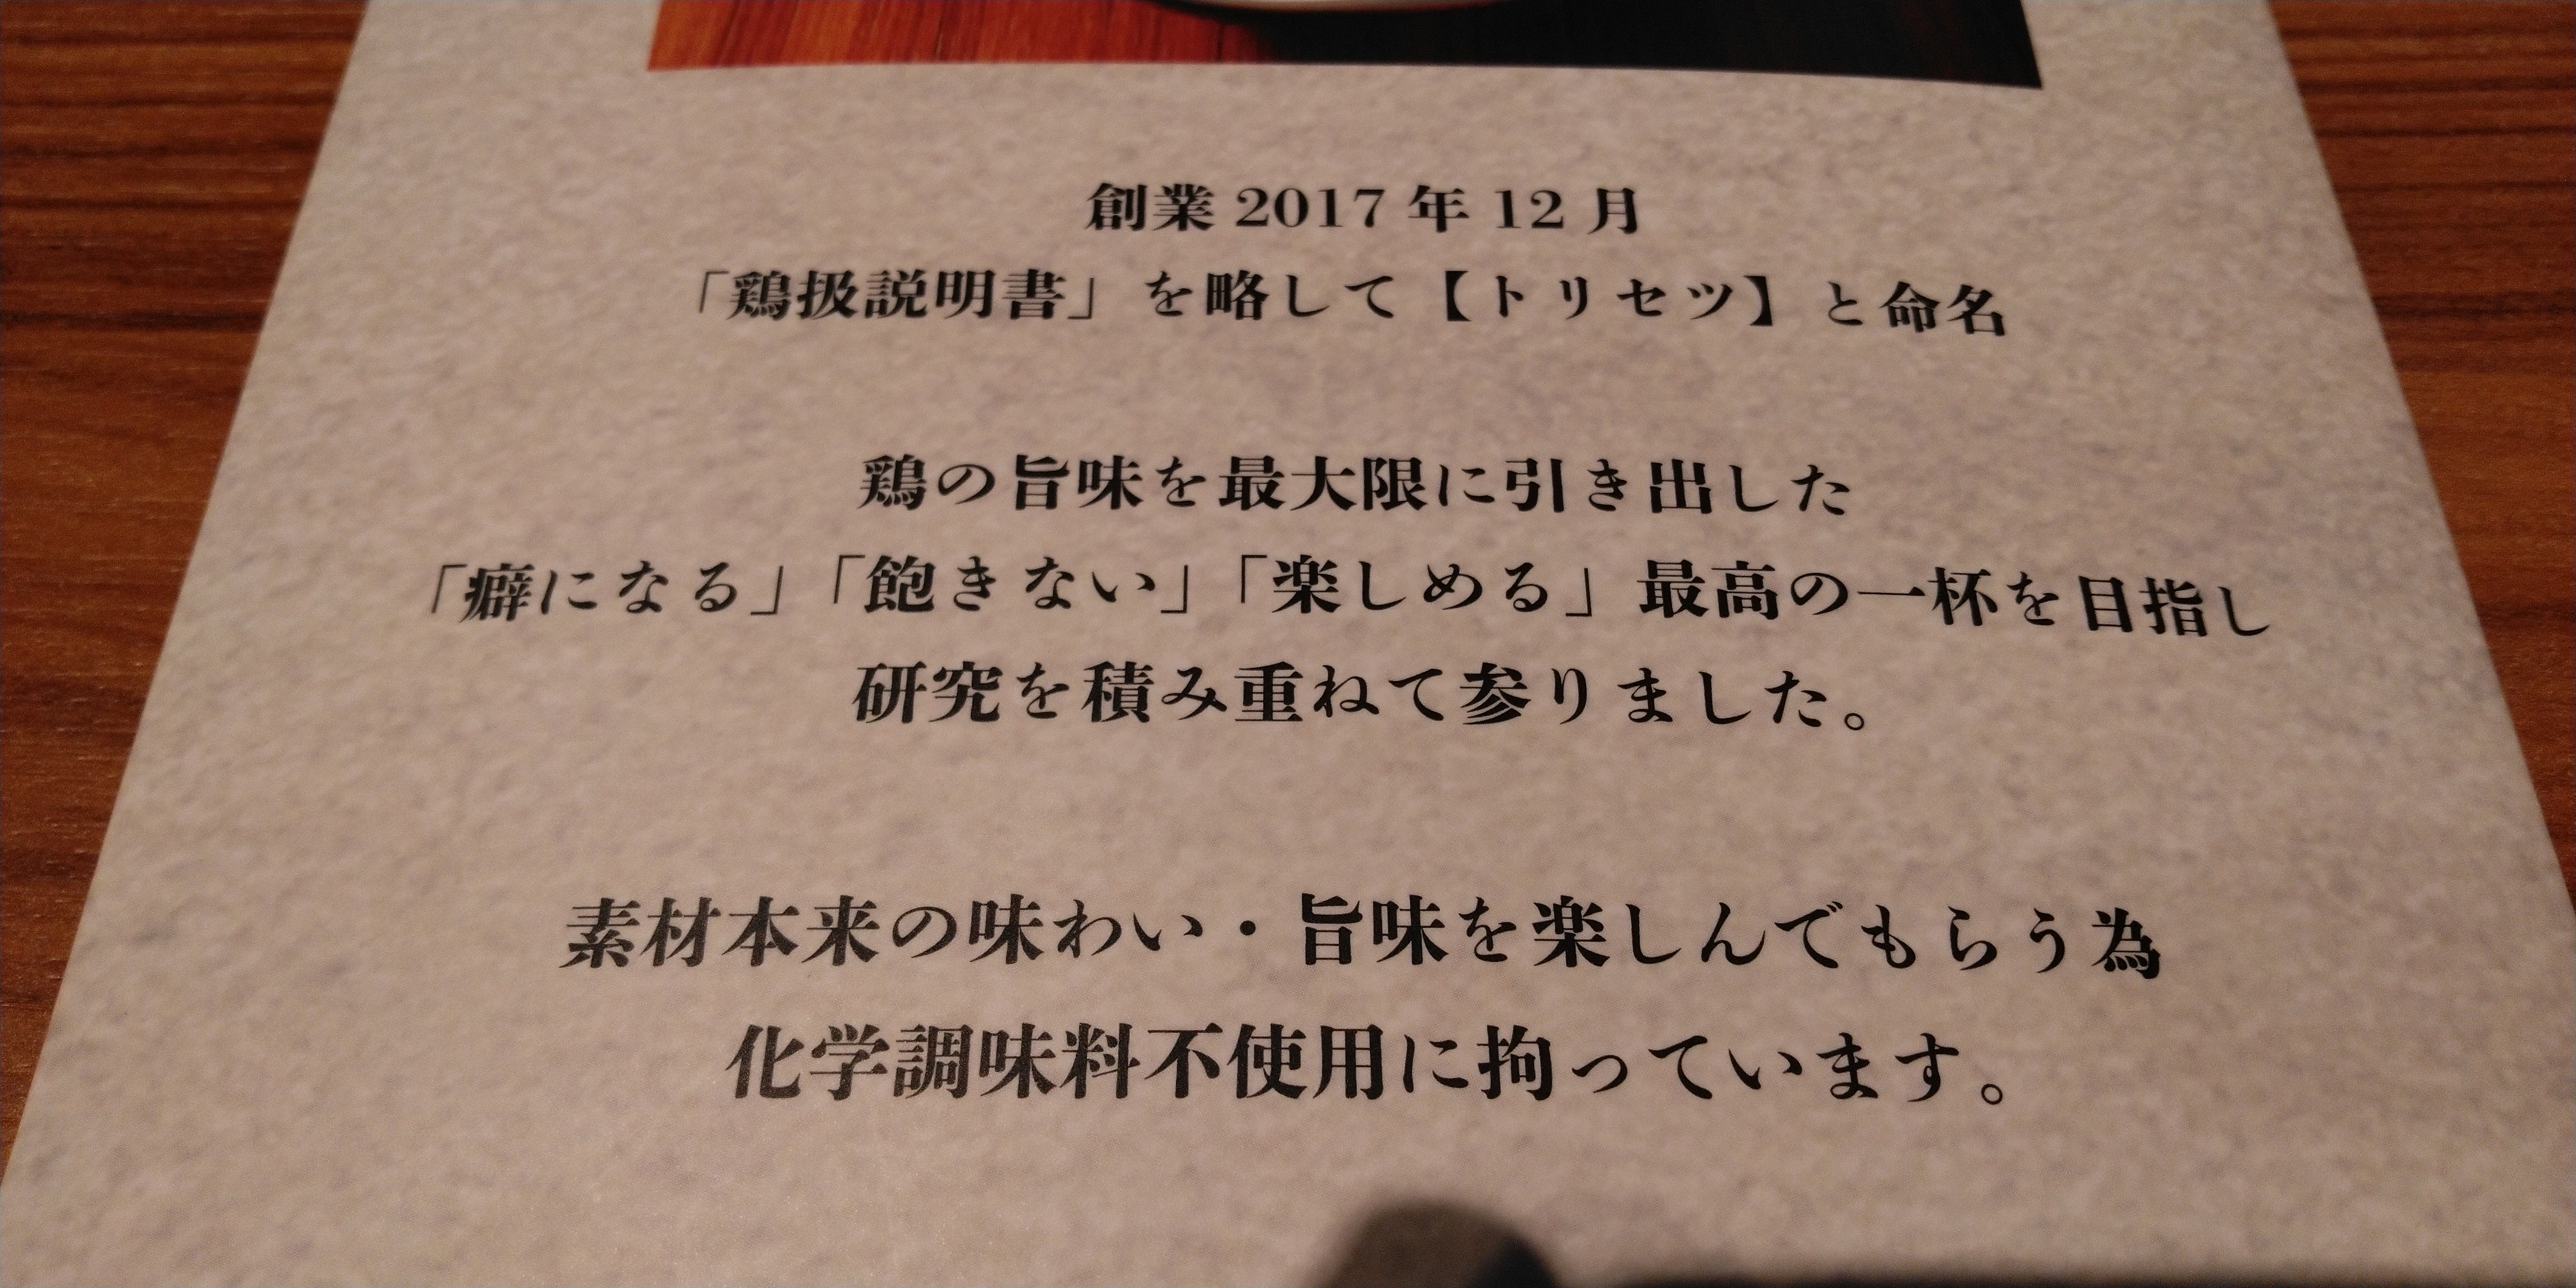 創業 2017 年 12 月
「鶏扱説明書」を略して【トリセツ】と命名
鶏の旨味を最大限に引き出した
「癖になる」「飽きない」「楽しめる」最高の一杯を目指し
研究を積み重ねて参りました。
素材本来の味わい・旨味を楽しんでもらう為
化学調味料不使用に拘っています。